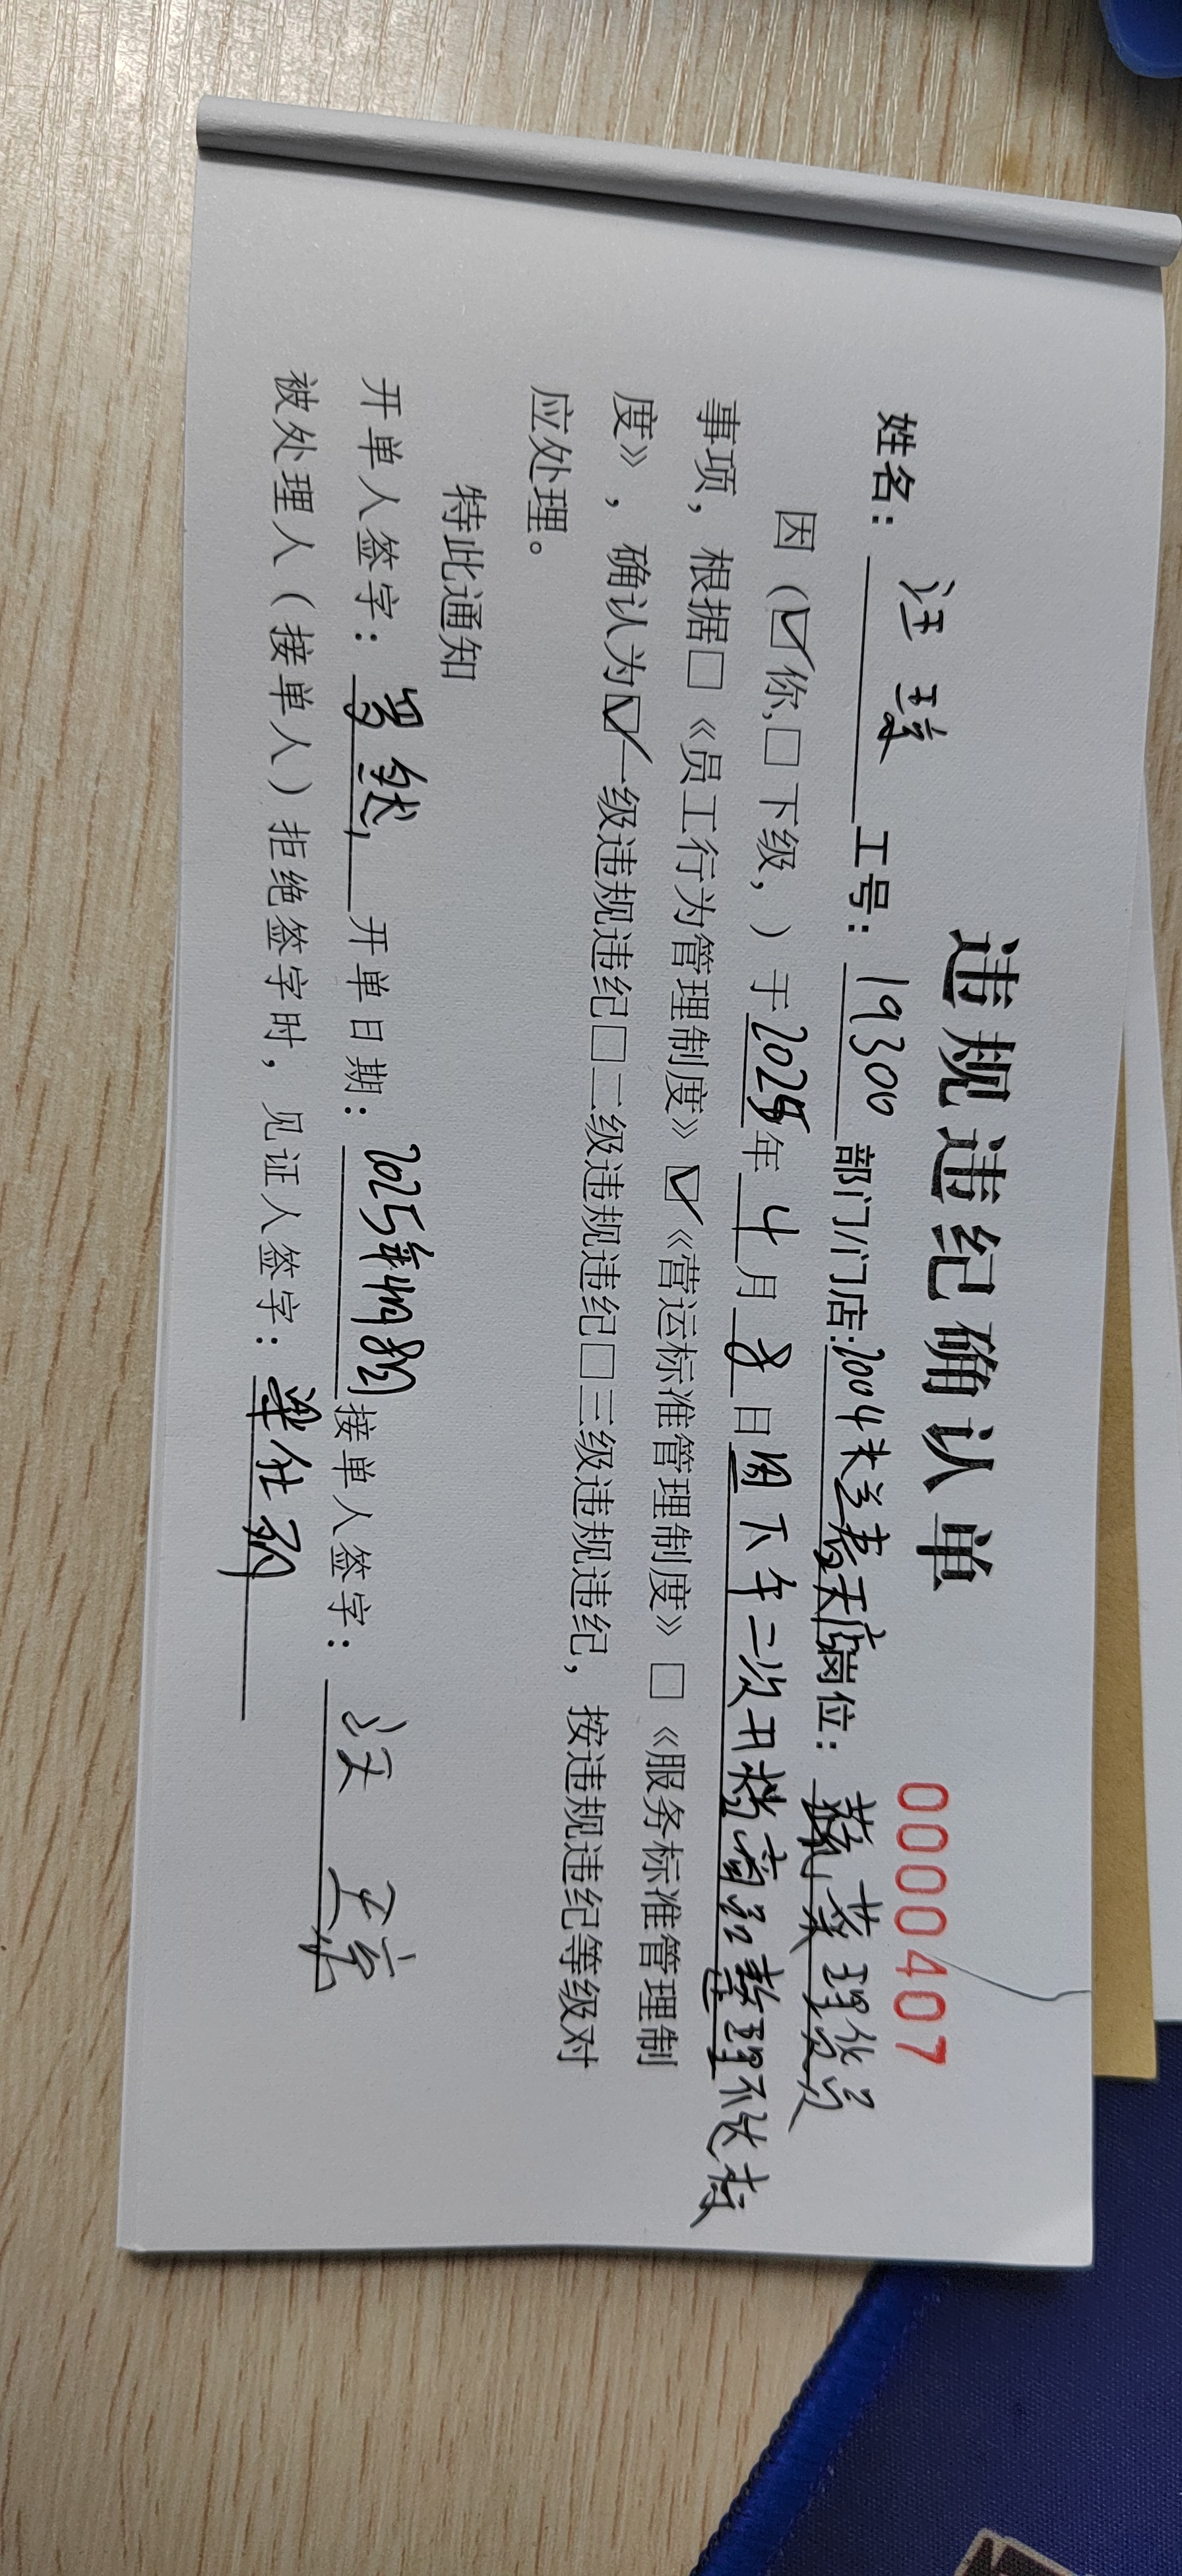 违规违纪确认单
0000407
姓名：汪 工号：19300 部门/门店：2004 天店岗位：蔬菜理货员
因（☑你,□下级，）于2025年4月8日因下午二次开档商品整理不达标
事项，根据□《员工行为管理制度》☑《营运标准管理制度》□《服务标准管理制
度》，确认为☑一级违规违纪□二级违规违纪□三级违规违纪，按违规违纪等级对
应处理。
特此通知
开单人签字： 开单日期：2025年4月8日接单人签字：汪
被处理人（接单人）拒绝签字时，见证人签字：梁仕